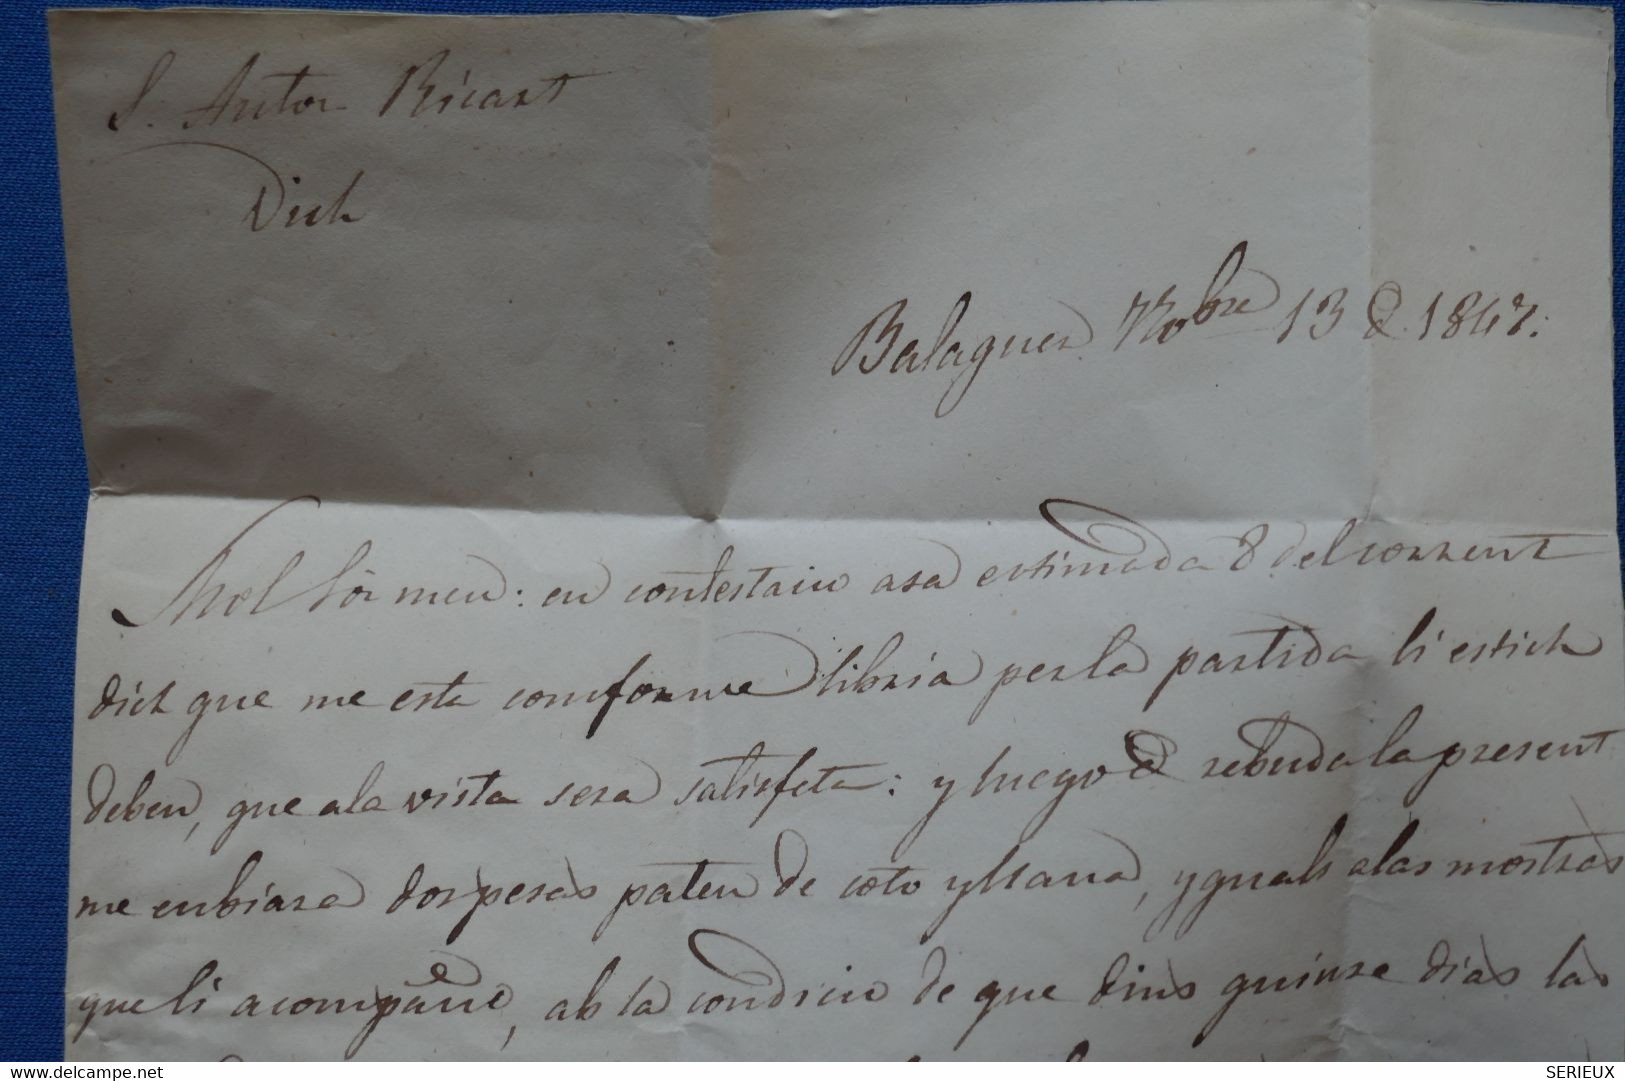 S. Anton Ricart
Vich
Balaguer Nobre 13 d 1847.
Mol Sor meu: en contestacio asa estimada 8 del corrent
dich que me esta comforme libria per la partida li estich
deben, que ala vista sera satisfeta: y luego d rebuda la present
me enbiara dos pesas paten de coto y llana, y guals alas mostras
que li acompañe, ab la condicio de que dins guinse dias las
delcampe.net
SERIEUX